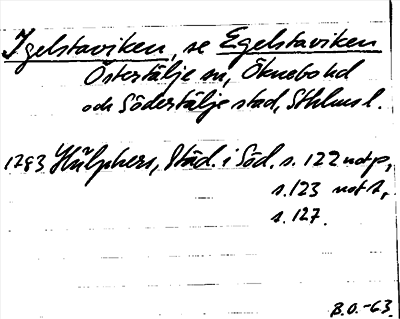 Igelstaviken, se Egelstaviken
Östertälje sn, Öknebo hd
och Södertälje stad, Sthlms l.
1783 Hülphers, Städ. i Söd. s. 122 not p,
s. 123 not t,
s. 127.
B.O.-63.